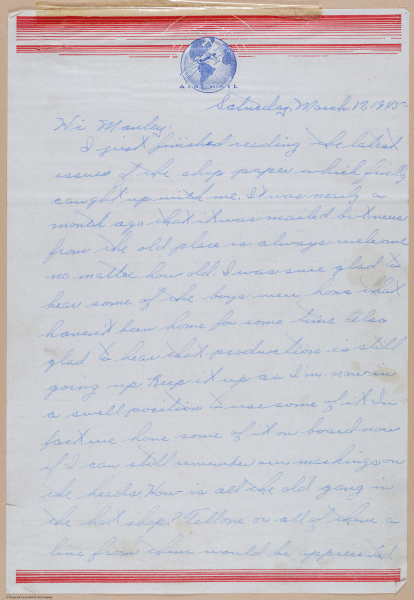 AIR MAIL
Saturday, March 17, 1945
Hi Manley:
I just finished reading the latest
issues of the shop paper which finally
caught up with me. It was nearly a
month ago that it was mailed but news
from the old place is always welcome
no matter how old. I was sure glad to
hear some of the boys were home that
haven't been home for some time. Also
glad to hear that production is still
going up. Keep it up as I'm now in
a swell position to use some of it. In
fact we have some of it on board now
if I can still remember our markings on
the heads. How is all the old gang in
the hot shop? Tell one or all of them a
line from them would be appreciated